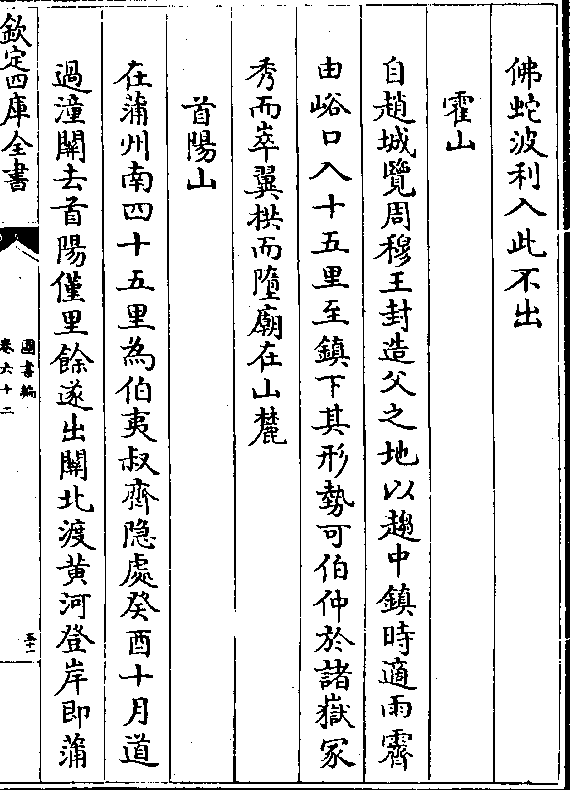 佛蛇波利入此不出
霍山
自趙城覽周穆王封造父之地以趨中鎮時適雨霽
由峪口入十五里至鎮下其形勢可伯仲於諸嶽冢
秀而崒翼拱而隨廟在山麓
首陽山
在蒲州南四十五里為伯夷叔齊隐處癸酉十月道
過潼關去首陽僅里餘遂出關北渡黄河登岸即蒲
欽定四庫全書
圖書編
卷六十二